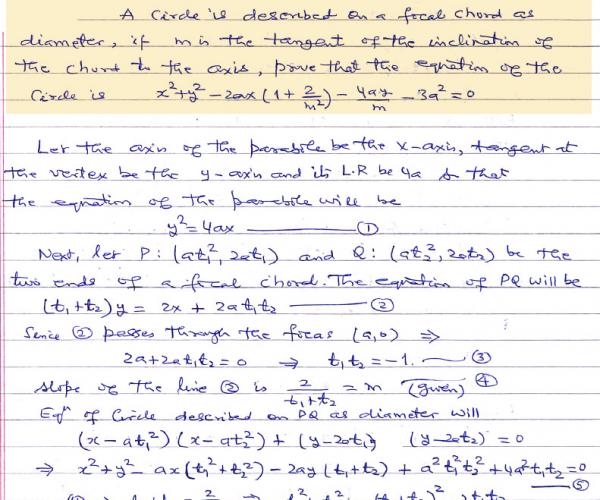 A Circle is described on a focal chord as
diameter, if m is the tangent of the inclination of
the chord to the axis, prove that the equation of the
Circle is x²+y²-2ax(1+2/m²)-4ay/m-3a²=0
Let the axis of the parabola be the x-axis, tangent at
the vertex be the y-axis and its L.R be 4a so that
the equation of the parabola will be
y²=4ax ——— ①
Next, let P: (at₁², 2at₁) and Q: (at₂², 2at₂) be the
two ends of a focal chord. The equation of PQ will be
(t₁+t₂)y = 2x + 2at₁t₂ ——— ②
Since ② passes through the focus (a,0) ⇒
2a+2at₁t₂=0 → t₁t₂=-1. — ③
slope of the line ② is 2/(t₁+t₂) = m (given) ④
Eqⁿ of Circle described on PQ as diameter will
(x-at₁²)(x-at₂²)+(y-2at₁) (y-2at₂)=0
⇒ x²+y²-ax(t₁²+t₂²)-2ay(t₁+t₂)+a²t₁²t₂²+4a²t₁t₂=0
— ⑤